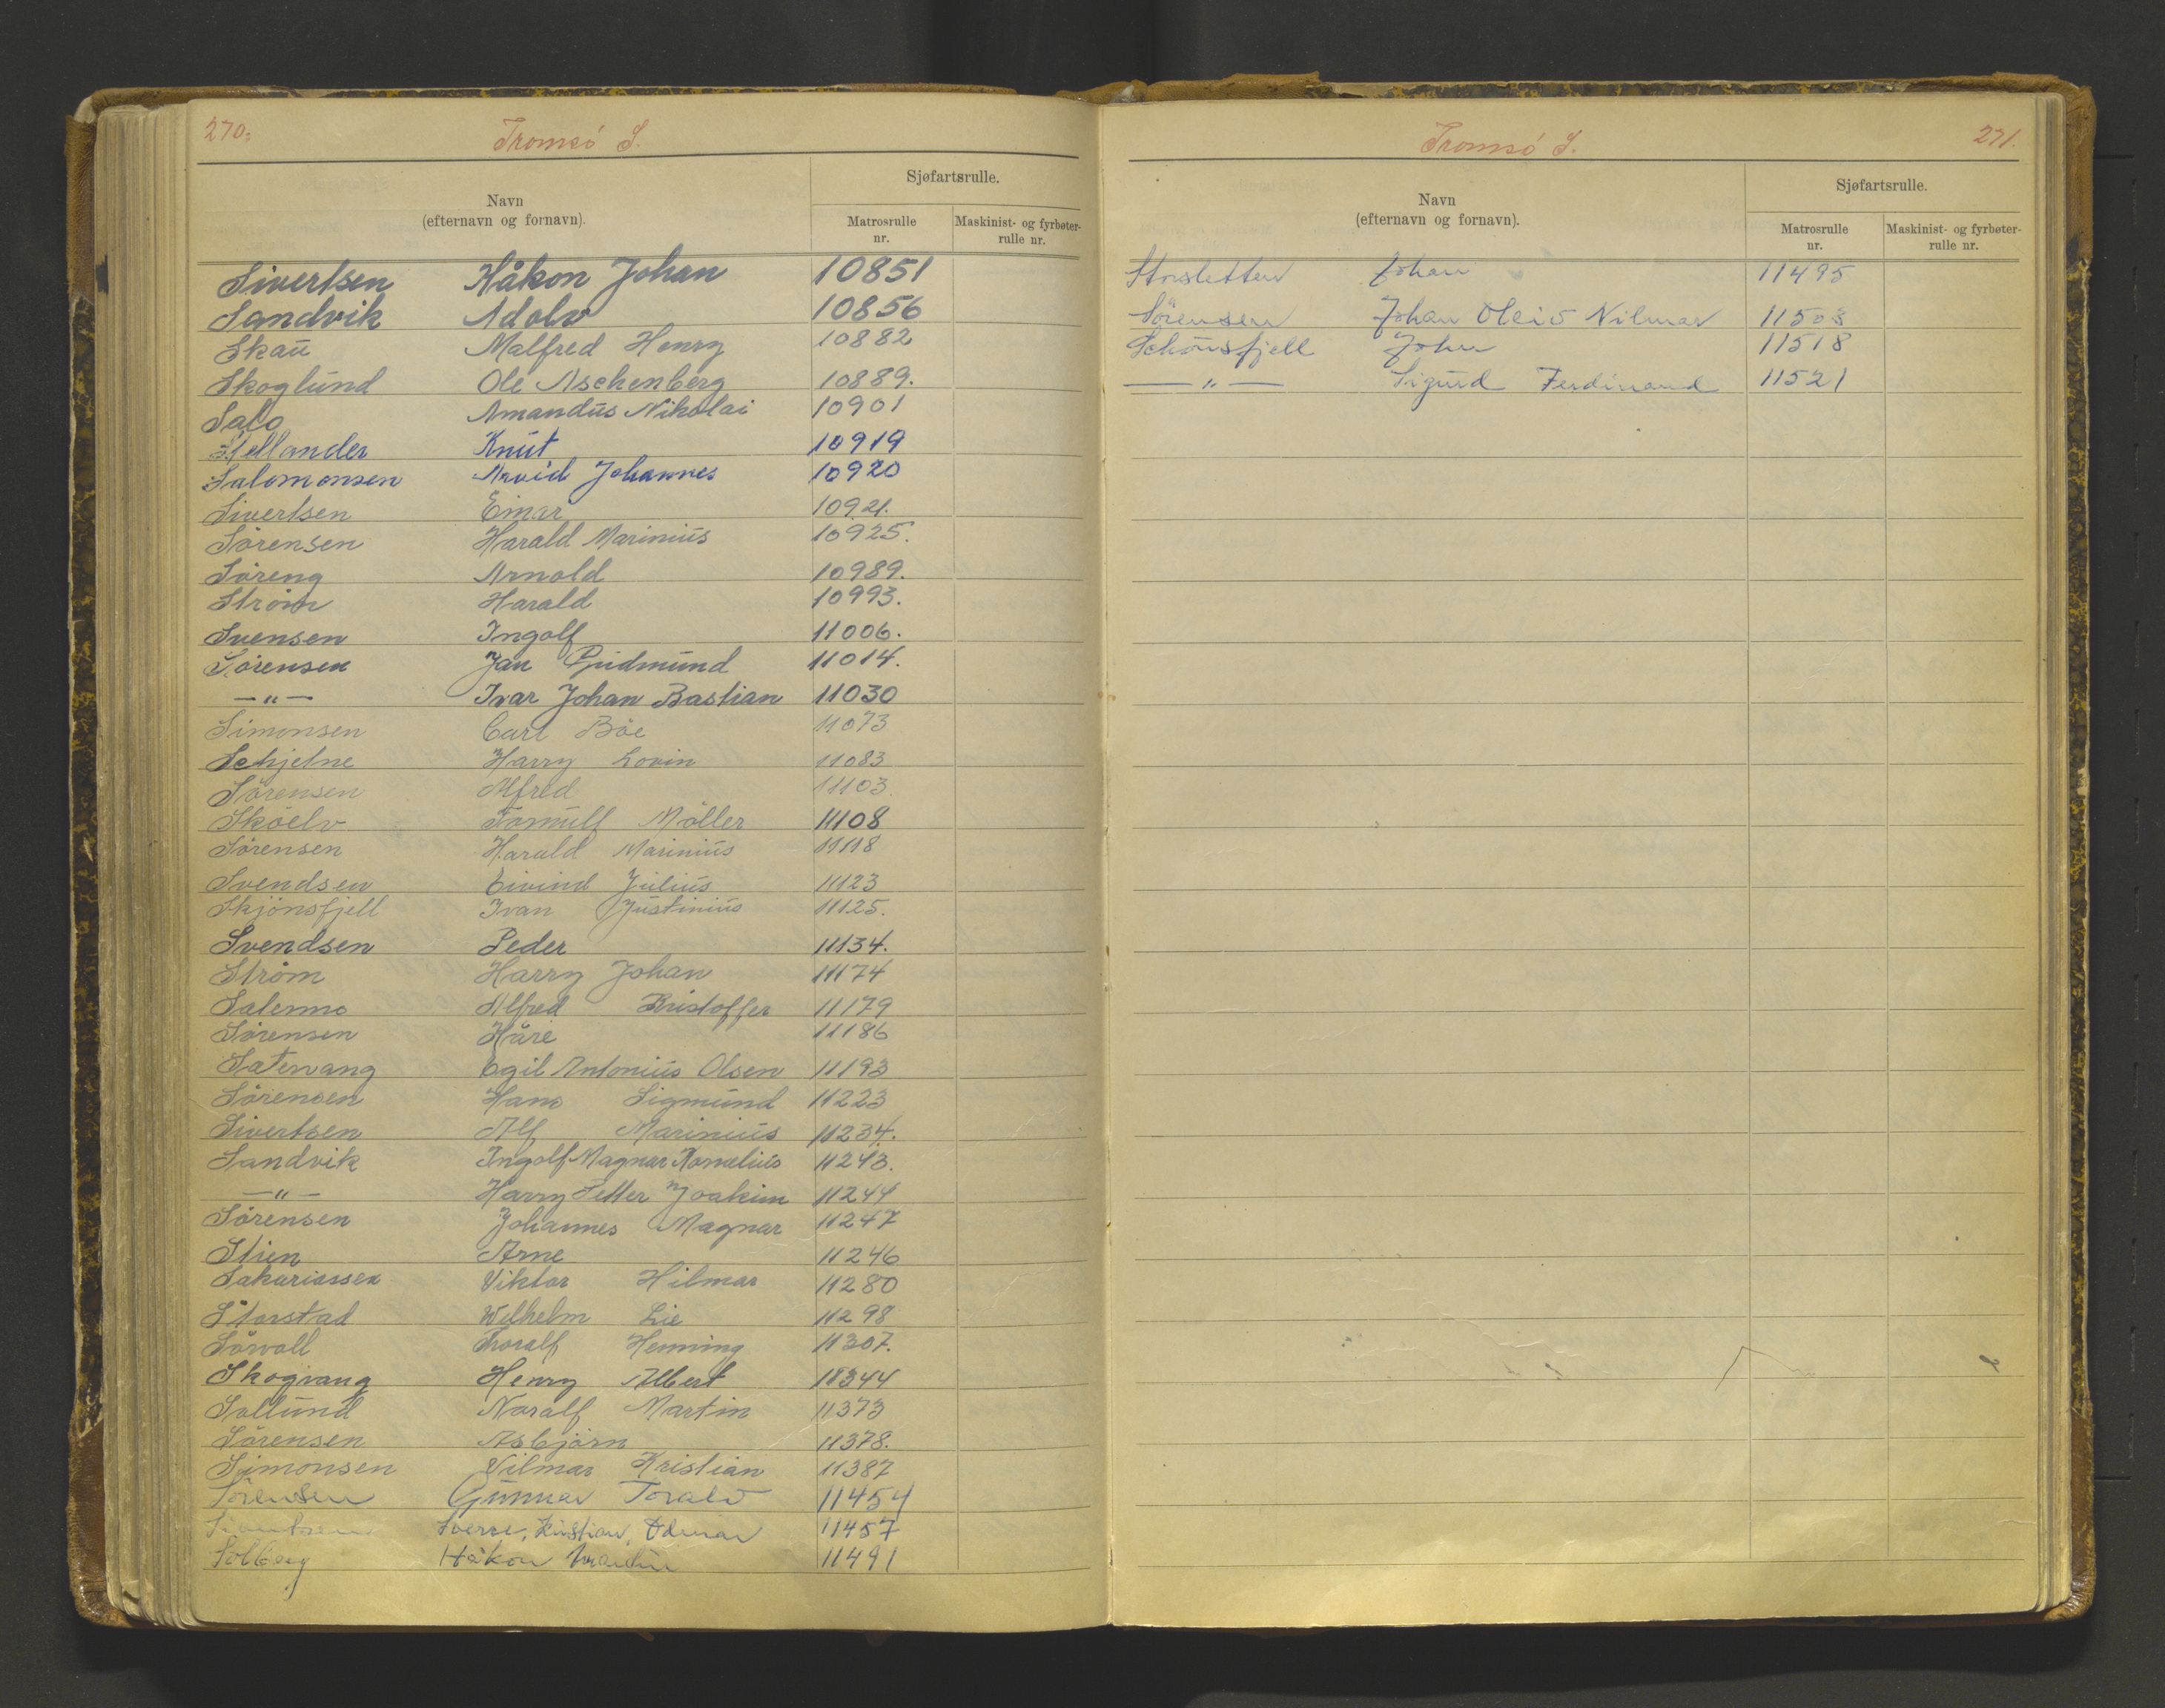 270.
Tromsö S.
Navn
(efternavn og fornavn).
Sjøfartsrulle.
Matrosrulle nr.
Maskinist- og fyrbøter-rulle nr.
Sivertsen Håkon Johan 10851
Sandvik Adolv 10856
Skau Malfred Henry 10882
Skoglund Ole Aschenberg 10889.
Salo Amandus Nikolai 10901
Stellander Knut 10919
Salomonsen Arvid Johannes 10920
Sivertsen Einar 10921.
Sörensen Harald Marinius 10925.
Söreng Arnold 10989.
Ström Harald 10993.
Svensen Ingolf 11006.
Sörensen Jan Gudmund 11014.
—"— Ivar Johan Bastian 11030
Simonsen Carl Böe 11073
Schjelne Harry Lovin 11083
Sörensen Alfred 11103.
Sköelv Tormulf Möller 11108
Sörensen Harald Marinius 11118
Svendsen Eivind Julius 11123
Skjönsfjell Ivan Justinius 11125.
Svendsen Peder 11134.
Ström Harry Johan 11174
Salenmo Alfred Kristoffer 11179
Sörensen Håre 11186
Satervang Egil Antonius Olsen 11193
Sörensen Hans Sigmund 11223
Sivertsen Alf Marinius 11234.
Sandvik Ingolf Magnar Kornelius 11243.
—"— Harry Petter Joakim 11244
Sörensen Johannes Magnar 11247
Stien Arne 11246
Sakariassen Viktor Hilmar 11280
Storstad Wilhelm Lie 11298
Sörvoll Thoralf Henning 11307.
Skogvang Henry Albert 11344
Sollund Noralf Martin 11373
Sörensen Asbjörn 11378.
Simonsen Vilmar Kristian 11387
Sörensen Gunnar Toralv 11454
Sverre, Kristian, Odmar 11457
Solberg Håkon Martin 11491
Tromsö S.
271.
Navn
(efternavn og fornavn).
Sjøfartsrulle.
Matrosrulle nr.
Maskinist- og fyrbøter-rulle nr.
Storsletten Johan 11495
Sörensen Johan Oleiv Nilmar 11503
Schönsfjell John 11518
—"— Sigurd Ferdinand 11521